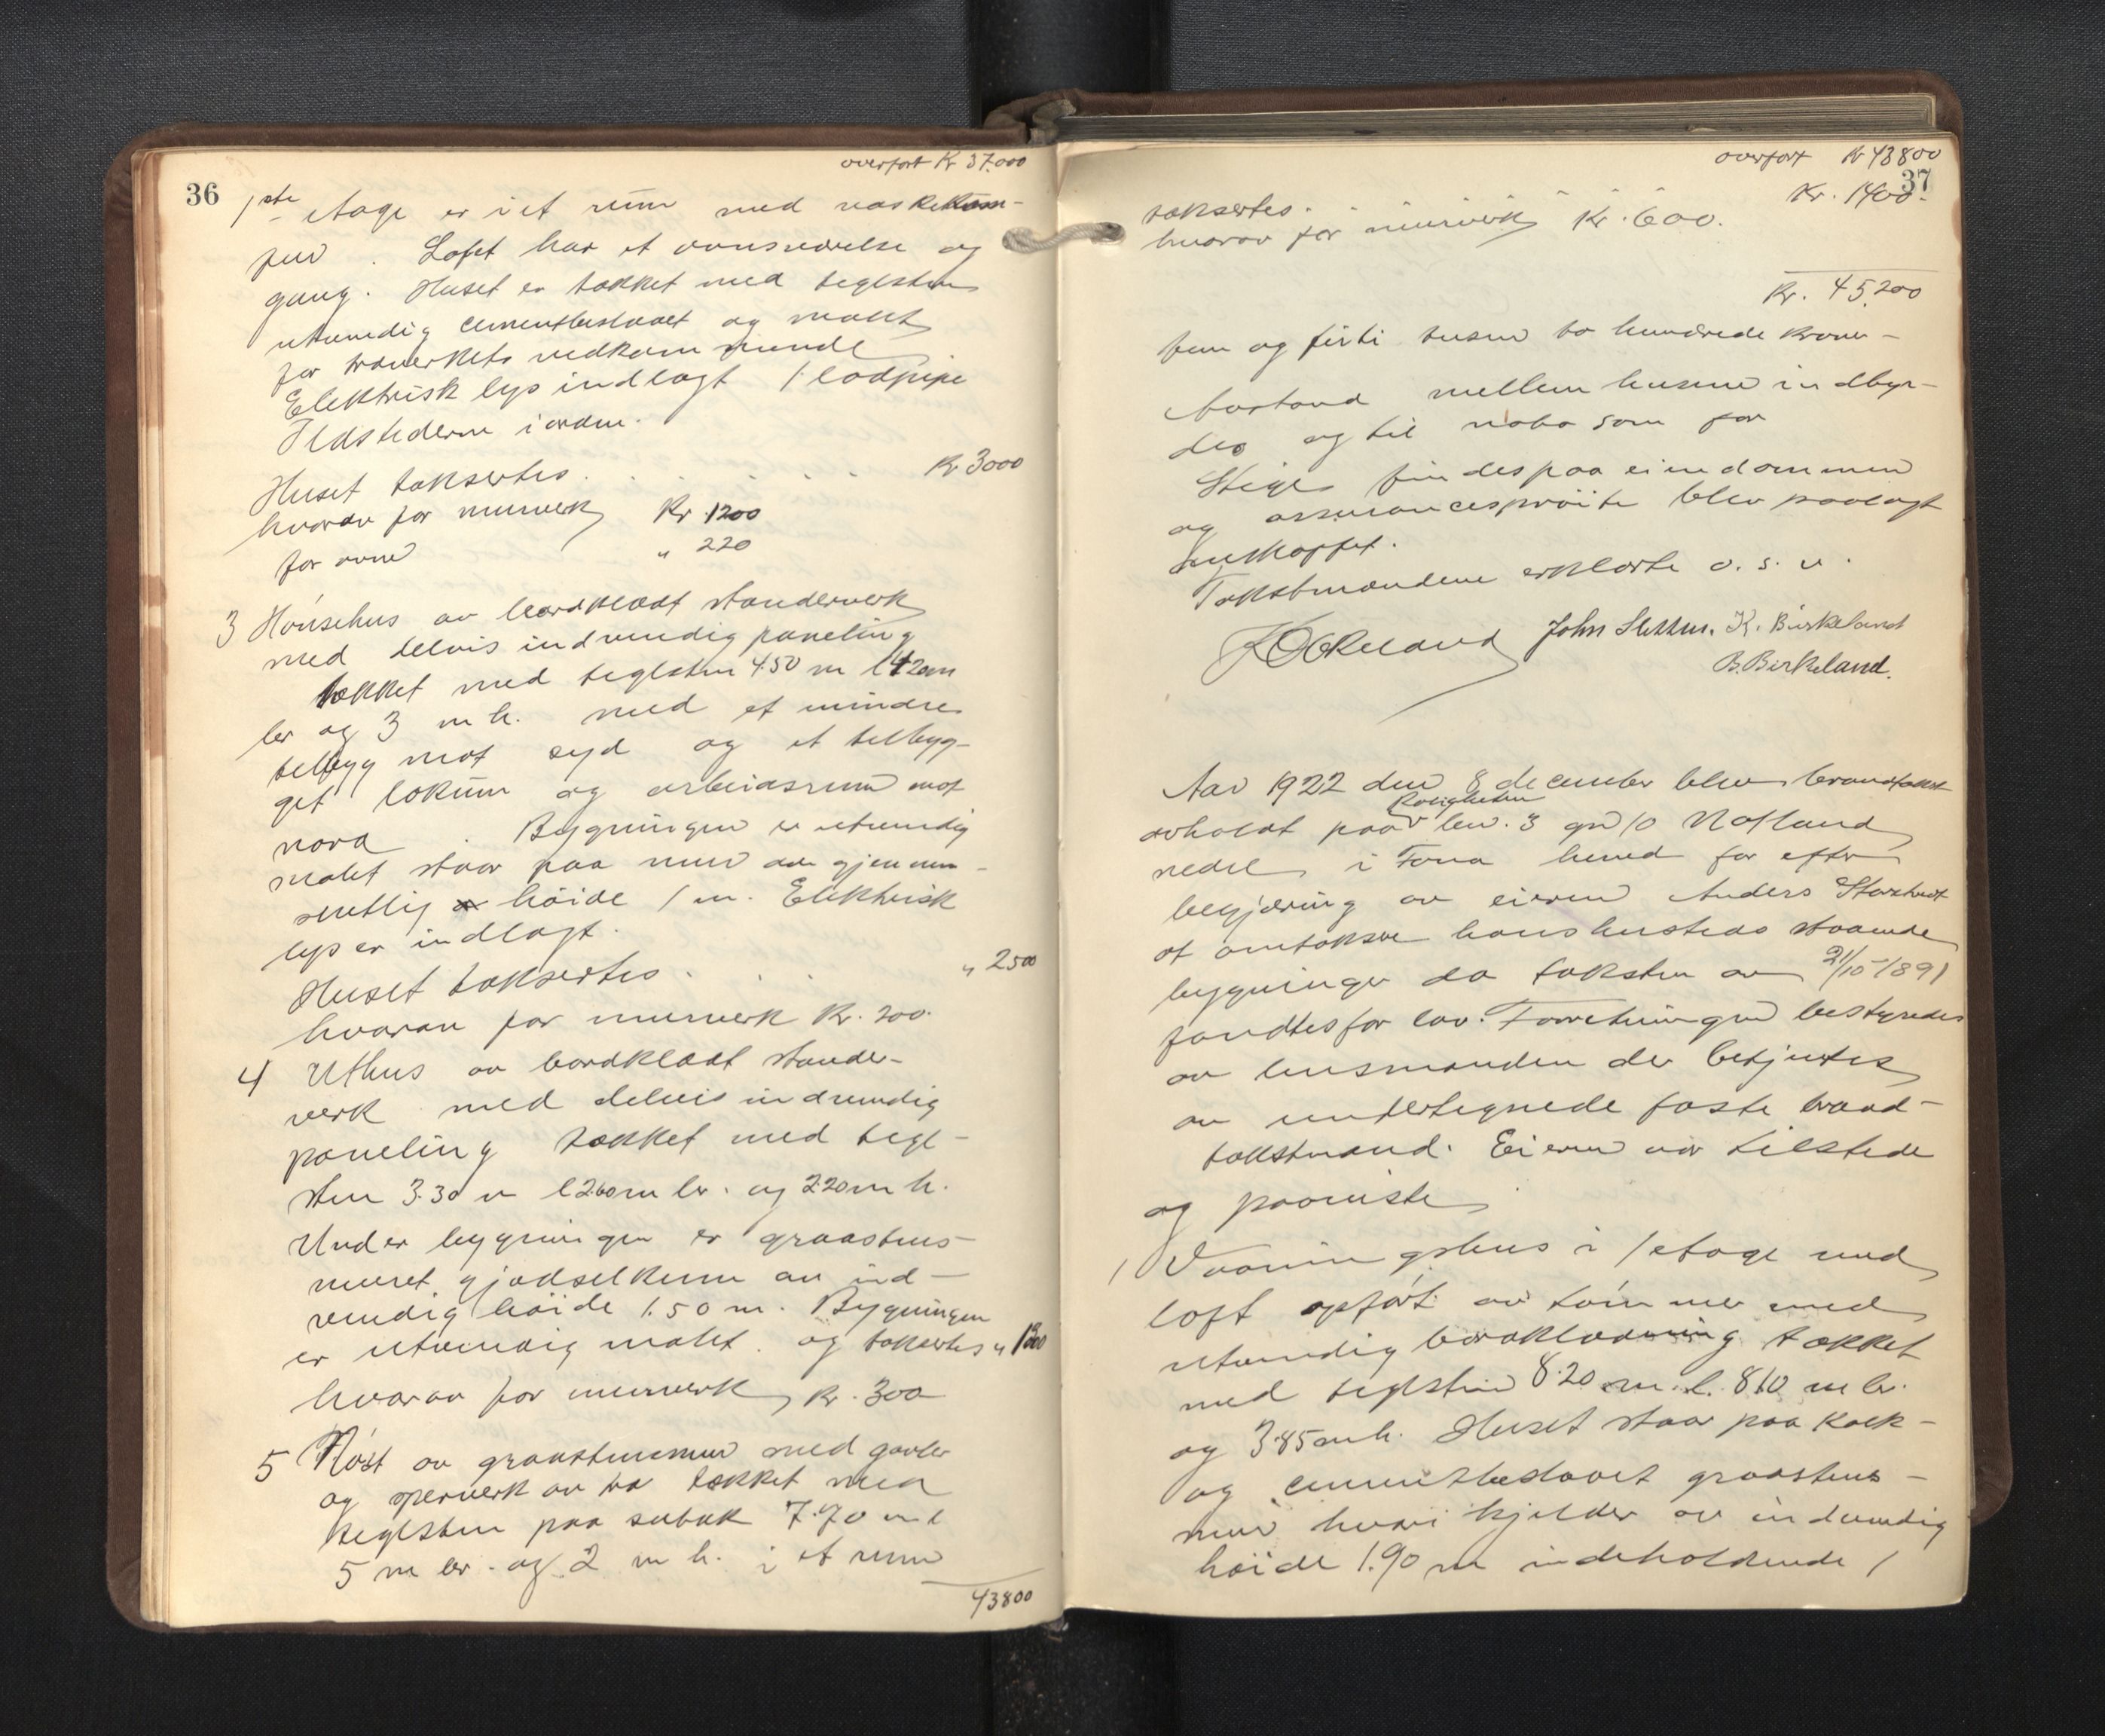 overført Kr 37.000
36
1ste etage er i et rum med vaskekam-
mer. Loftet har et
gang. Huset er tækket med teglsten
utvendig cementbeslaaet og malet
for træverkets vedkommende
Elektrisk lys indlagt 1 lodpipe
Ildstederne i orden.
Huset taksertes . . . . . Kr 3000
hvorav for murverk Kr. 1200
for ovne " 220
3 Hönsehus av bordklædt standerverk
med delvis indvendig paneling
tækket med teglsten 4.50 m l 4 20 m
br og 3 m h. med et mindre
tilbygg mot syd og et tilbyg-
get lokum og arbeidsrum mot
nord. Bygningen er utvendig
malet staar paa mur av gjennem-
snitlig høide 1 m. Elektrisk
lys er indlagt.
Huset taksertes . . . " 2500
hvorav for murverk Kr. 200.
4 Uthus av bordklædt stander-
verk med delvis indvendig
paneling tækket med tegl-
sten 3.30 m l 2.60 m br. og 2.20 m h.
Under bygningen er graastens-
muret gjødselkum av ind-
vendig høide 1.50 m. Bygningen
er utvendig malet. og taksertes "
hvorav for murverk Kr. 300
5 Nøst av graastensmur med gavler
og sperverk av træ tækket med
teglsten paa subuk 7.70 m l
5 m br. og 2 m h. i et rum
43800
overført Kr 43800
37
taksertes . . . . Kr. 1400.
hvorav for murverk Kr. 600.
Kr. 45.200
fem og firti tusen to hundrede kroner-
Avstand mellem husene indbyr-
des og til nabo som før
Stiger findes paa eiendommen
og assurancesprøite blev paalagt
indskaffet.
Takstmændene erklærte o. s. v.
John Sletten. K. Birkeland
B. Birkeland.
Aar 1922 den 8 december blev brandtakst
avholdt paa Roligheten brn. 3 gn 10 Natland
nedre i Fana herred for efter
begjæring av eieren Anders Storetvedt
at omtaksere hans husteds staaende
bygninger da taksten av 21/10 1891
fandtes for lav. Forretningen bestyredes
av lensmanden der betjentes
av undertegnede faste brand-
takstmænd. Eieren var tilstede
og paaviste
1 Vaaningshus i 1 etage med
loft opført av tømmer med
utvendig bordklædning tækket
med teglsten 8.20 m. l. 8.10 m br.
og 3.85 m h. Huset staar paa kalk-
og cementbeslaaet graastens-
mur hvori kjelder av indvendig
høide 1.90 m indeholdende 1